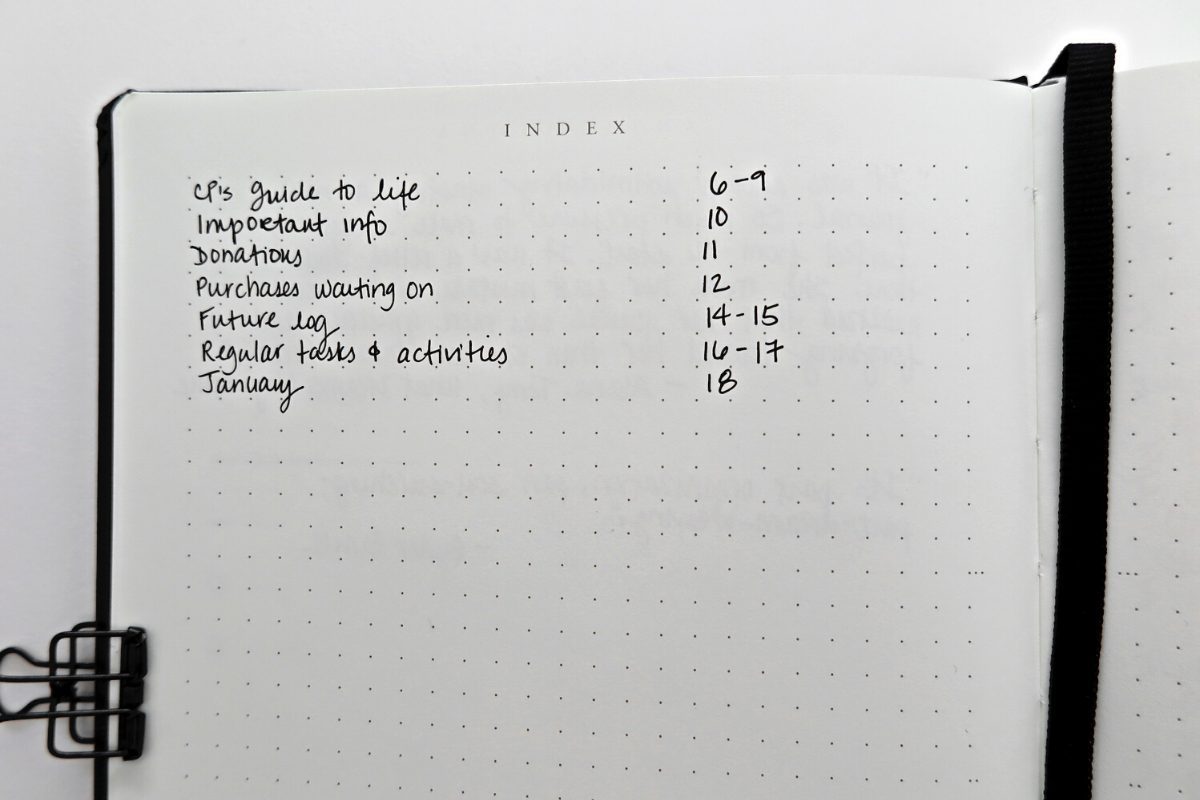 INDEX
CP's guide to life 6-9
Important info 10
Donations 11
Purchases waiting on 12
Future log 14-15
Regular tasks & activities 16-17
January 18